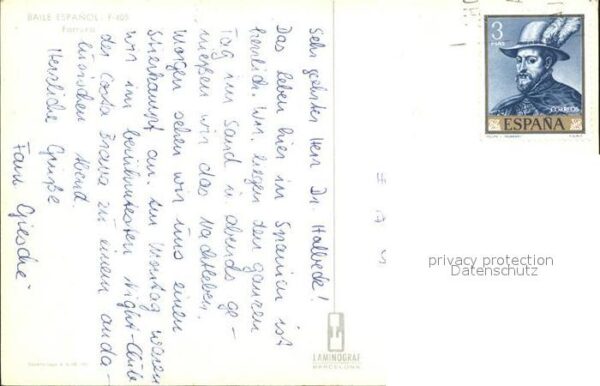 BAILE ESPAÑOL: F-405
Farruca
Sehr geehrter Herr Dr. Halbeck!
Das Leben hier in Spanien ist
herrlich. Wir liegen den ganzen
Tag im Sand u. abends ge-
nießen wir das Nachtleben.
Morgen sehen wir uns einen
Stierkampf an. Am Montag waren
wir im berühmtesten Night-Club
der Costa Brava zu einem anda-
lusischen Abend.
Herzliche Grüße
Fam.
3
PTAS
CORREOS
ESPAÑA
privacy protection
Datenschutz
LAMINOGRAF
BARCELONA